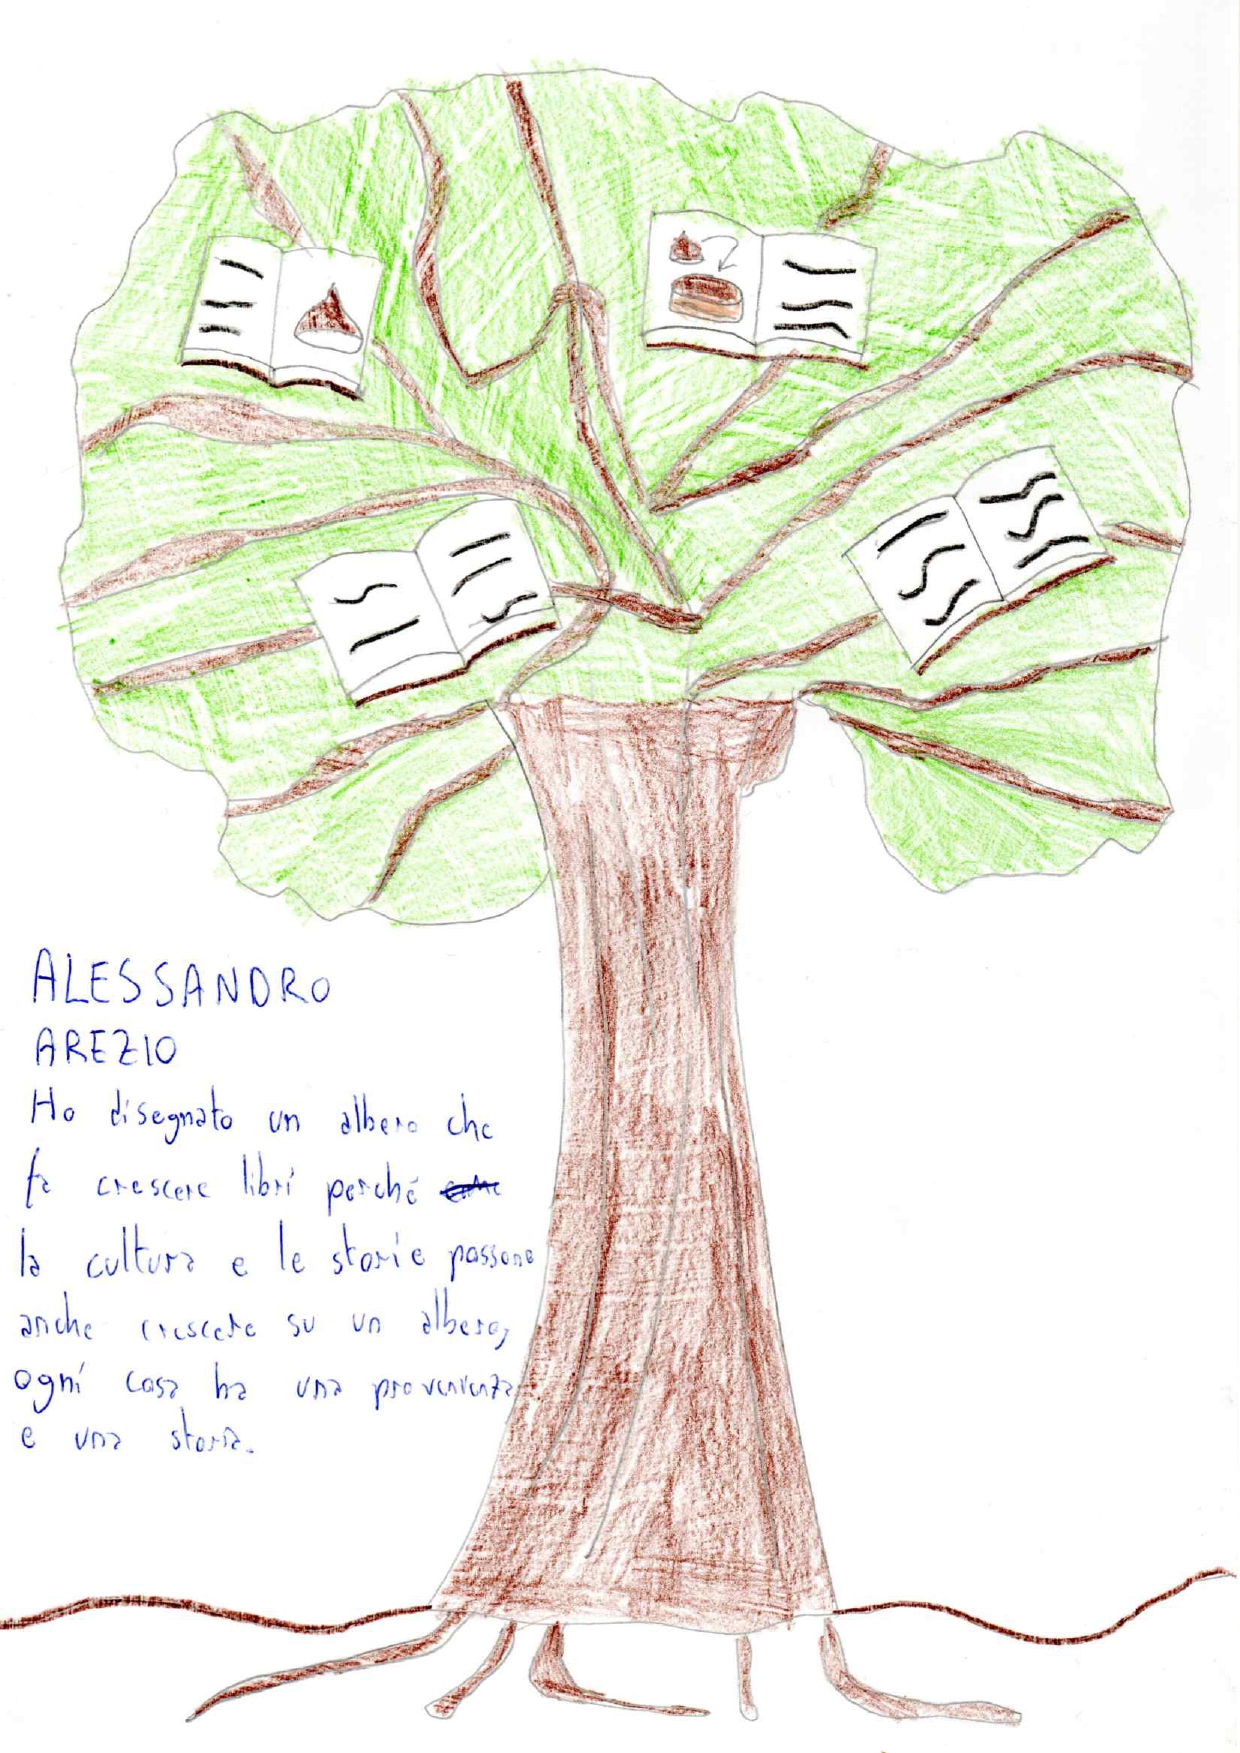 ALESSANDRO
AREZIO
Ho disegnato un albero che
fa crescere libri perché
la cultura e le storie possono
anche crescere su un albero,
ogni cosa ha una provenienza
e una storia.